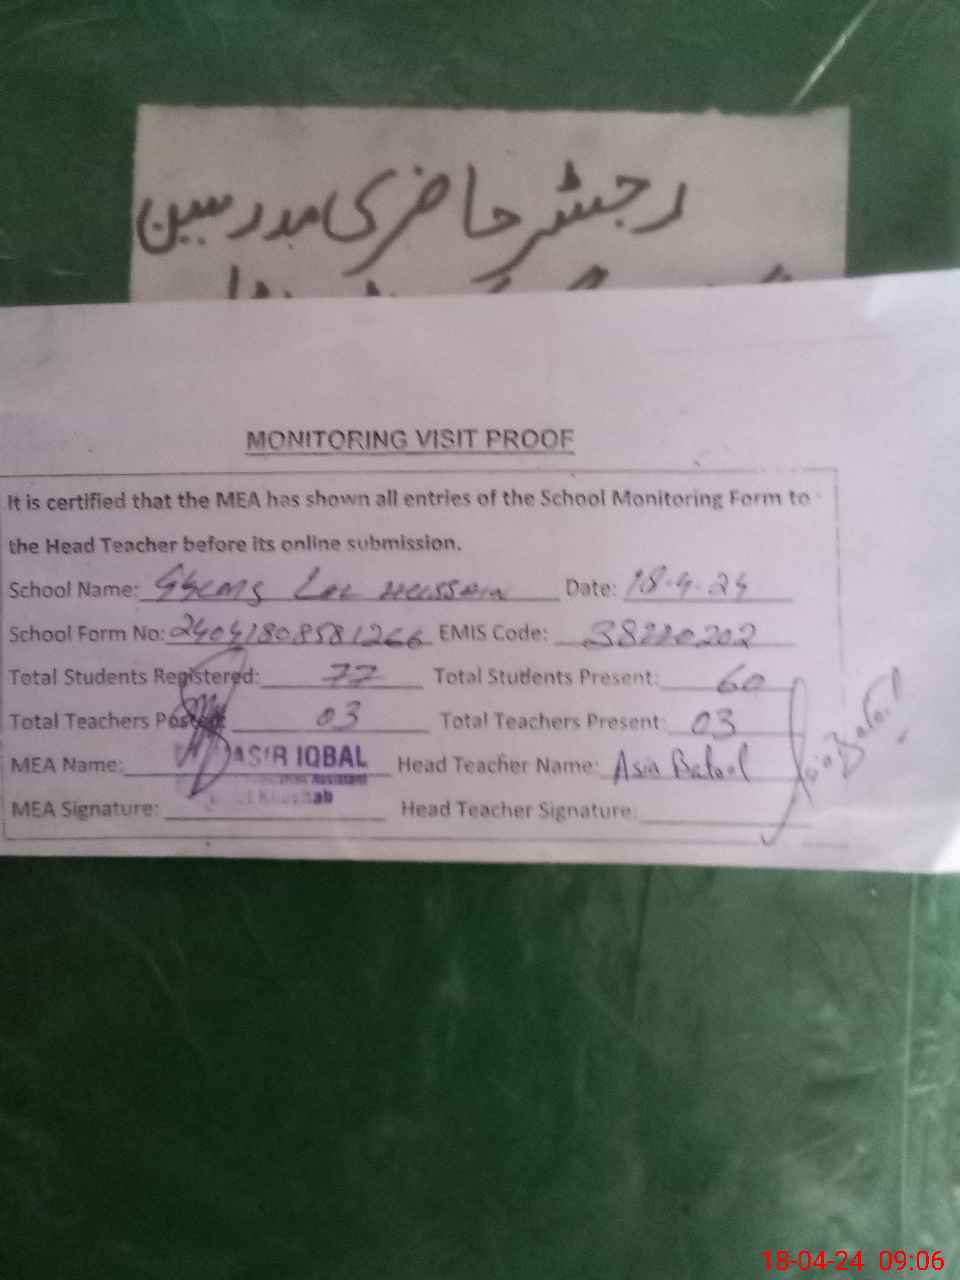 رجسٹر حاضری مدرسین
MONITORING VISIT PROOF
It is certified that the MEA has shown all entries of the School Monitoring Form to
the Head Teacher before its online submission.
School Name: Lal Hussain Date: 18-4-24
School Form No: 24041808581266 EMIS Code: 38220202
Total Students Registered: 77 Total Students Present: 60
Total Teachers Posted: 03 Total Teachers Present: 03
MEA Name: ASIR IQBAL Head Teacher Name: Asia Batool
Assistant
MEA Signature: Head Teacher Signature:
18-04-24 09:06